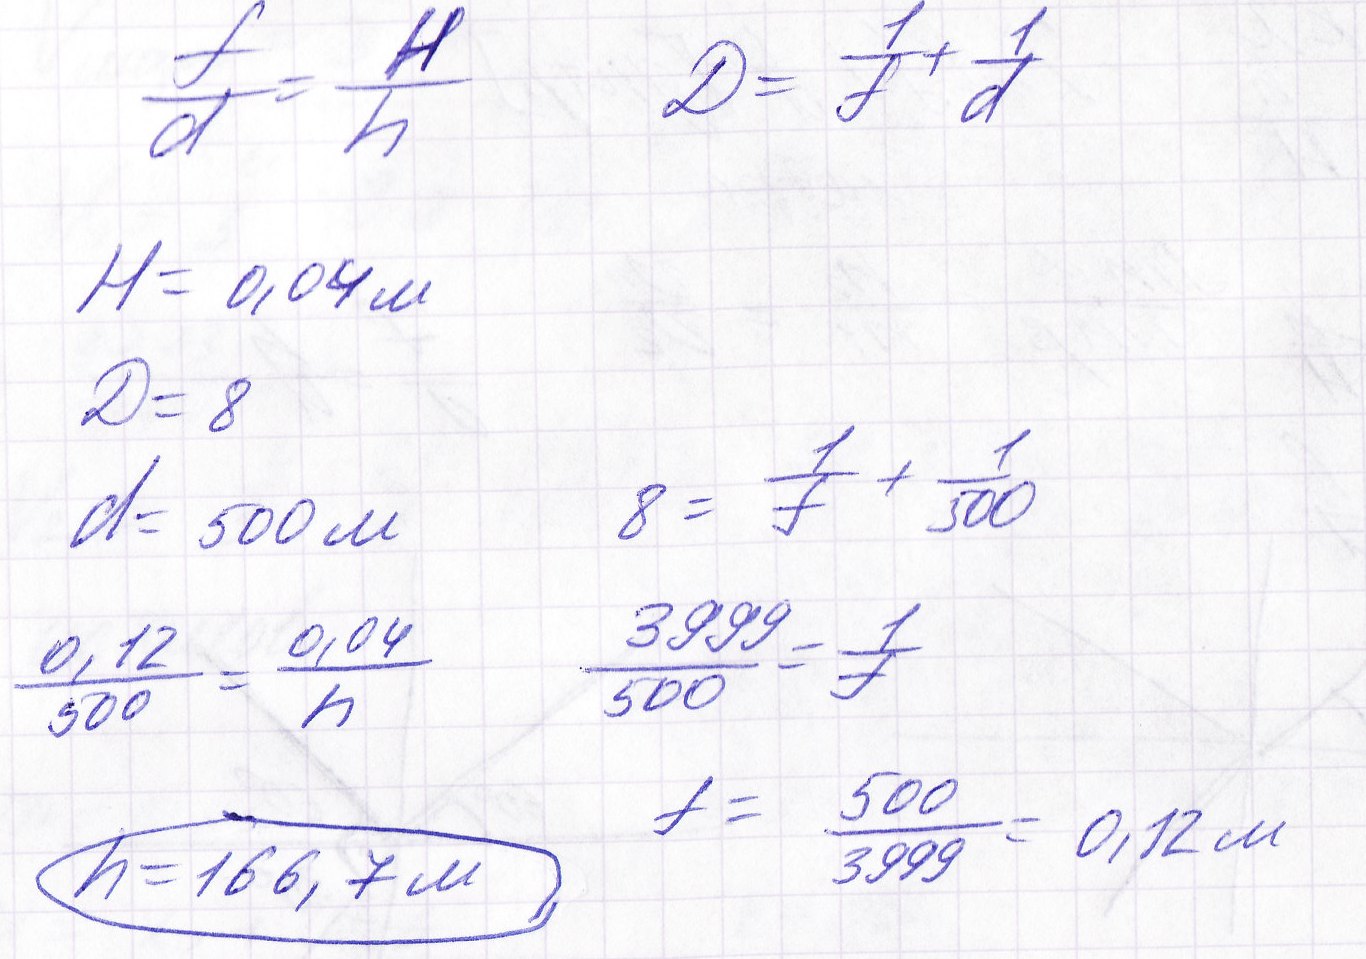 f/d = H/h
D = 1/f + 1/d
H = 0,04 м
D = 8
d = 500 м
8 = 1/f + 1/500
0,12/500 = 0,04/h
3999/500 = 1/f
f = 500/3999 = 0,12 м
h = 166,7 м